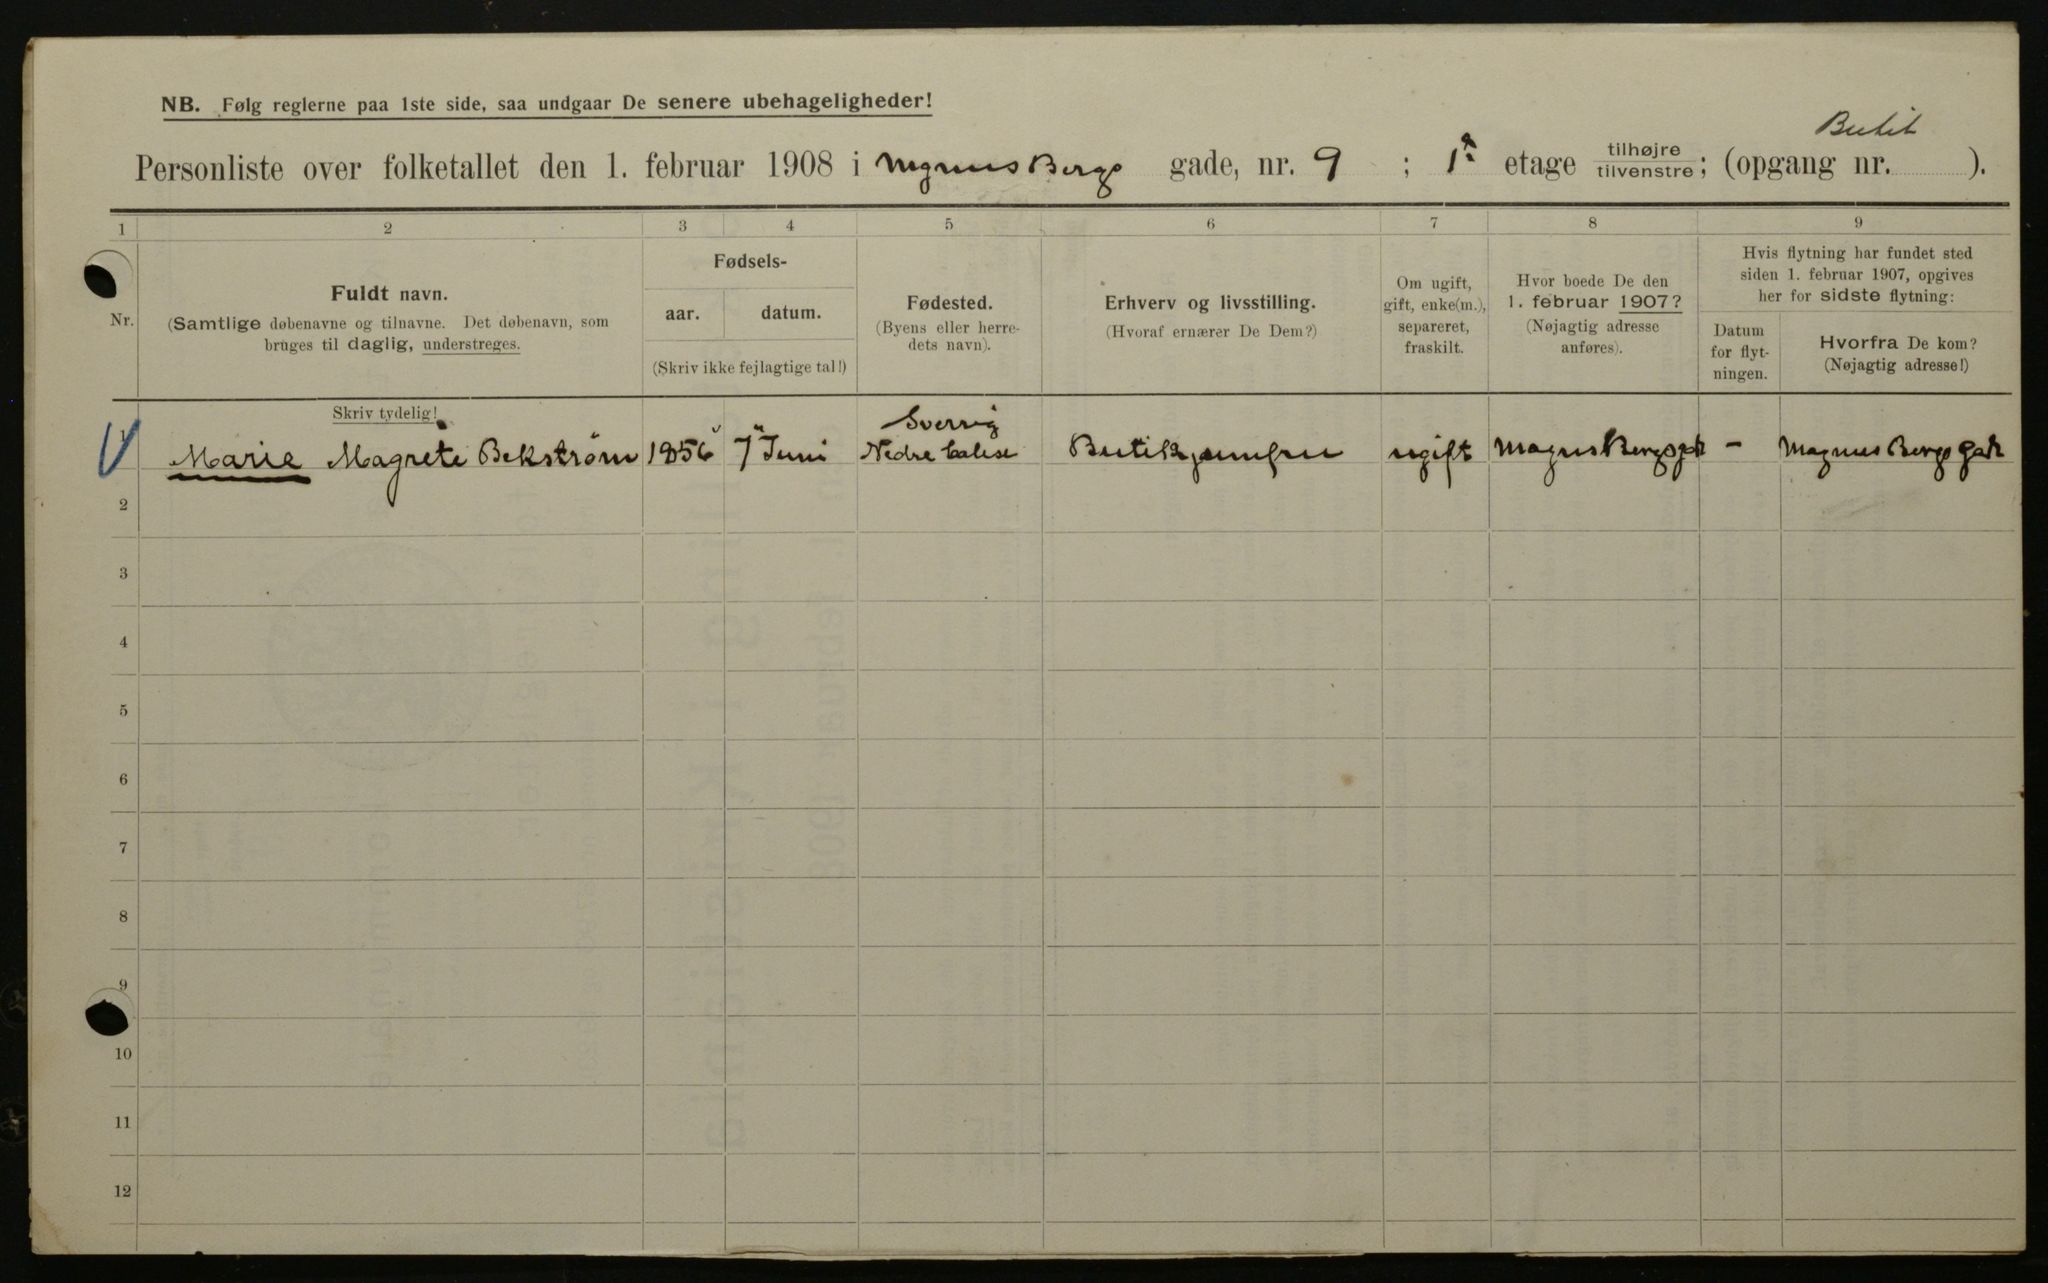 NB. Følg reglerne paa 1ste side, saa undgaar De senere ubehageligheder!
Butik
Personliste over folketallet den 1. februar 1908 i Magnus Bergs gade, nr. 9 ; 1ste etage tilhøjre tilvenstre; (opgang nr. ).
1 2 3 4 5 6 7 8 9
Nr.
Fuldt navn.
(Samtlige døbenavne og tilnavne. Det døbenavn, som
bruges til daglig, understreges.
Skriv tydelig!
Fødsels-
aar. datum.
(Skriv ikke fejlagtige tal!)
Fødested.
(Byens eller herre-
dets navn).
Erhverv og livsstilling.
(Hvoraf ernærer De Dem?)
Om ugift,
gift, enke(m.),
separeret,
fraskilt.
Hvor boede De den
1. februar 1907?
(Nøjagtig adresse
anføres).
Hvis flytning har fundet sted
siden 1. februar 1907, opgives
her for sidste flytning:
Datum
for flyt-
ningen.
Hvorfra De kom?
(Nøjagtig adresse!)
Sverrig
1 Marie Magrete Bekstrøm 1856 7 Juni Nedre ugift Magnus Bergsgt – Magnus Bergs gade
2
3
4
5
6
7
8
9
10
11
12